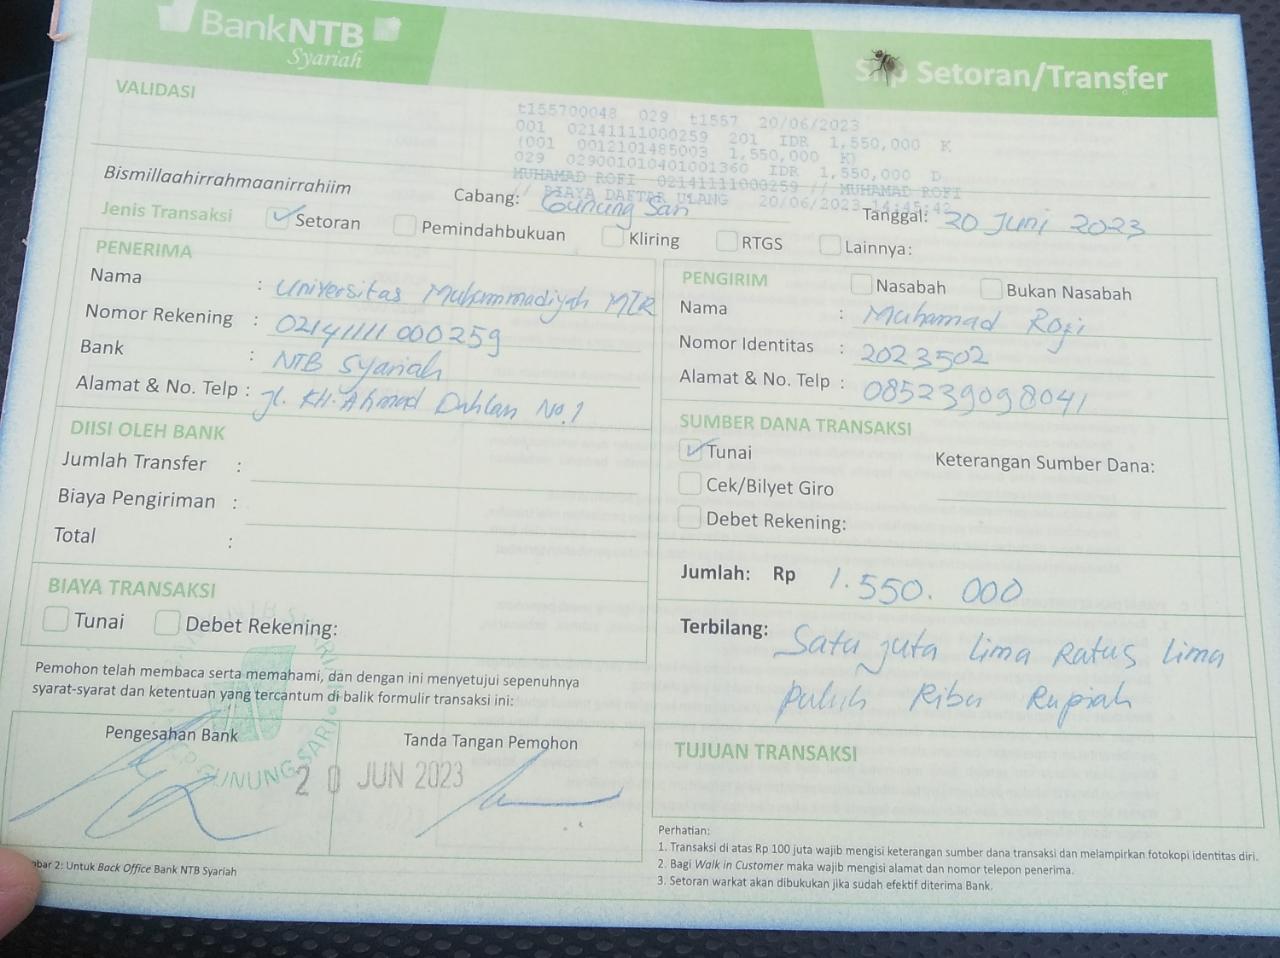 BankNTB
Syariah
Setoran/Transfer
VALIDASI
t155700048 029 t1557 20/06/2023
001 02141111000259 201 IDR 1,550,000 K
(001 0012101485003 1,550,000 K)
029 029001010401001360 IDR 1,550,000 D
MUHAMAD ROFI 02141111000259 // MUHAMAD ROFI
// BIAYA DAFTAR ULANG 20/06/2023 14:45:42
Bismillaahirrahmaanirrahiim
Cabang: Gunung Sari
Tanggal: 20 Juni 2023
Jenis Transaksi Setoran Pemindahbukuan Kliring RTGS Lainnya:
PENERIMA
Nama : Universitas Muhammadiyah MTR
Nomor Rekening : 02141111 000259
Bank : NTB Syariah
Alamat & No. Telp : Jl. KH. Ahmad Dahlan No.1
PENGIRIM Nasabah Bukan Nasabah
Nama : Muhamad Rofi
Nomor Identitas : 2023502
Alamat & No. Telp : 085239098041
DIISI OLEH BANK
Jumlah Transfer :
Biaya Pengiriman :
Total :
SUMBER DANA TRANSAKSI
Tunai Keterangan Sumber Dana:
Cek/Bilyet Giro
Debet Rekening:
BIAYA TRANSAKSI
Tunai Debet Rekening:
Jumlah: Rp 1.550.000
Terbilang: Satu juta lima Ratus lima
puluh Ribu Rupiah
Pemohon telah membaca serta memahami, dan dengan ini menyetujui sepenuhnya
syarat-syarat dan ketentuan yang tercantum di balik formulir transaksi ini:
Pengesahan Bank
Tanda Tangan Pemohon
GUNUNG SARI
20 JUN 2023
TUJUAN TRANSAKSI
2: Untuk Back Office Bank NTB Syariah
Perhatian:
1. Transaksi di atas Rp 100 juta wajib mengisi keterangan sumber dana transaksi dan melampirkan fotokopi identitas diri.
2. Bagi Walk in Customer maka wajib mengisi alamat dan nomor telepon penerima.
3. Setoran warkat akan dibukukan jika sudah efektif diterima Bank.